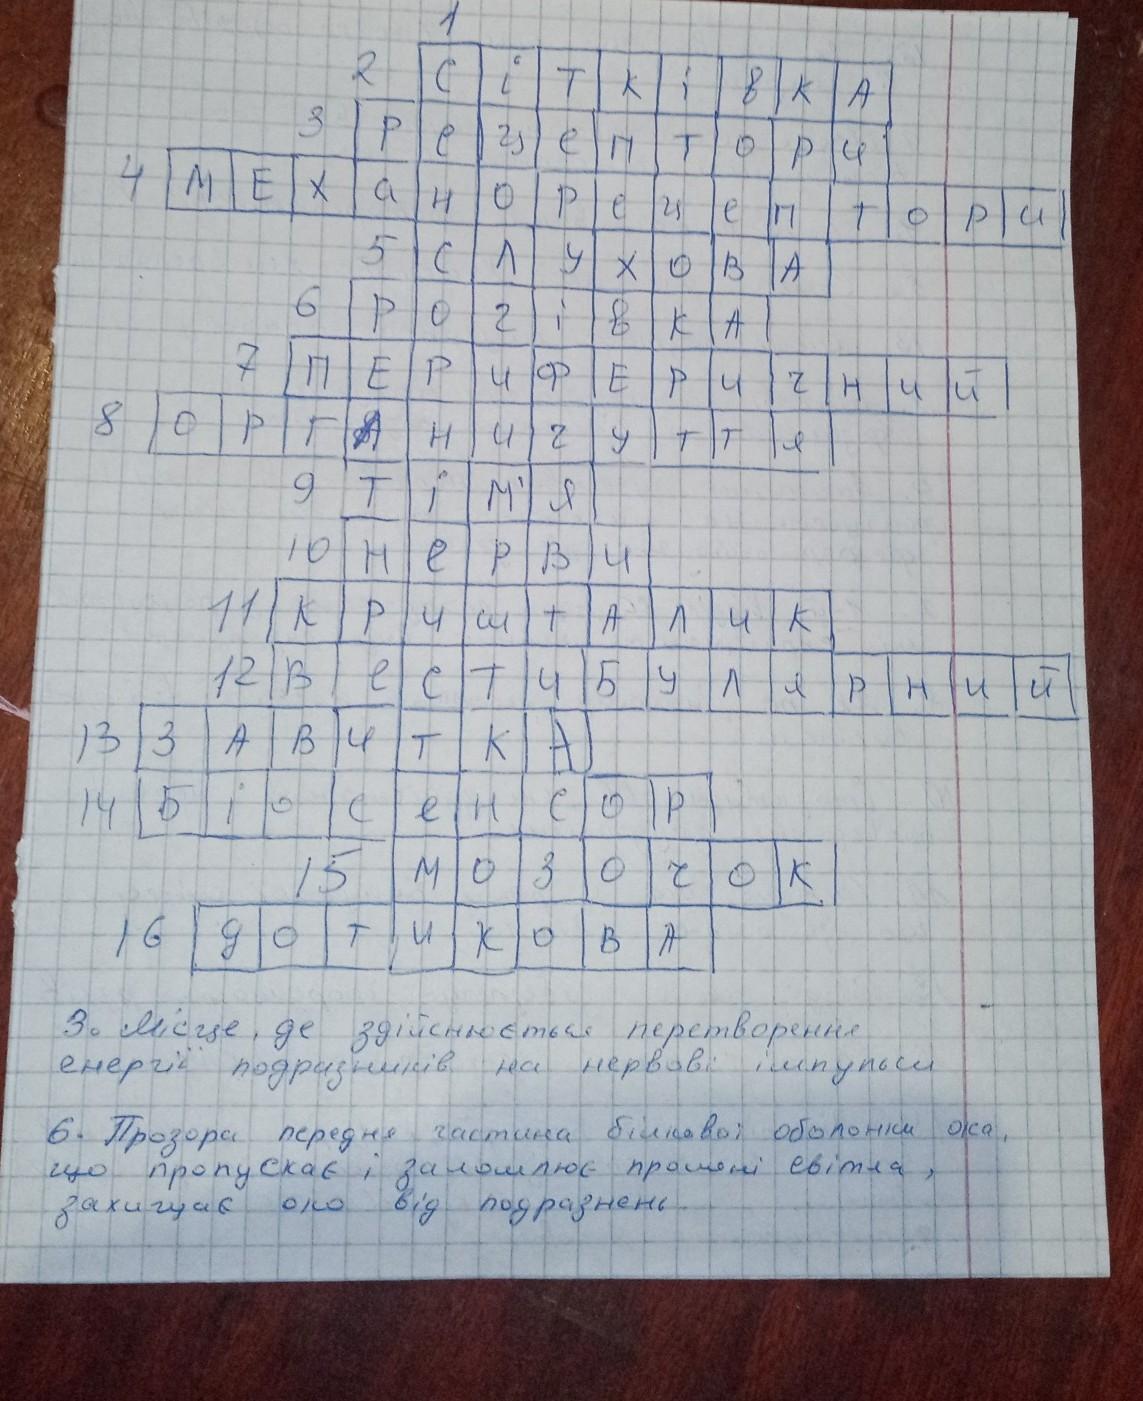 1
2 СіТКіВКА
3 РецепТОРИ
4 МЕХанОРецепТОРИ
5 СЛУХОВА
6 РОГіВКА
7 ПЕРИФЕРИЧНИЙ
8 ОРГАНИЧУТТЯ
9 ТіМ'Я
10 НеРВИ
11 КРИШТАЛИК
12 ВеСТИБУЛЯРНИЙ
13 ЗАВИТКА
14 БіоСеНСОР
15 МОЗОЧОК
16 ДОТИКОВА
3. Місце, де здійснюється перетворення
енергії подразників на нервові імпульси
6. Прозора передня частина білкової оболонки ока,
що пропускає і заломлює промені світла,
захищає око від подразнень.